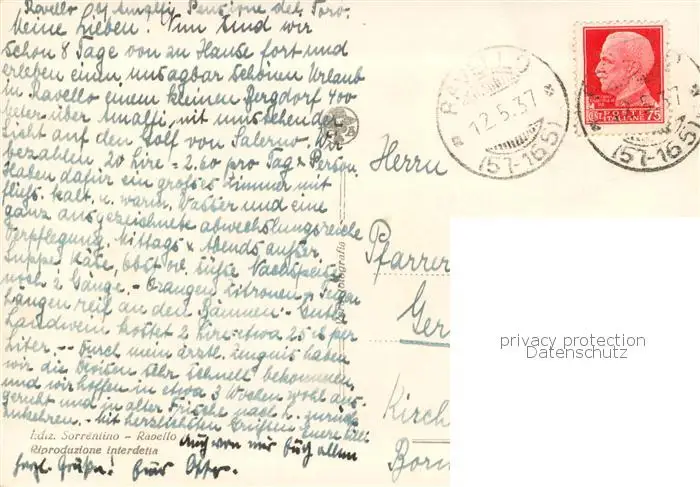 Ravello bei Amalfi, Pensione del Toro.
Meine Lieben! Nun sind wir
schon 8 Tage von zu Hause fort und
erleben einen unsagbar schönen Urlaub
in Ravello einem kleinen Bergdorf 400
meter über Amalfi, mit umstehender
Sicht auf den Golf von Salerno. Wir
bezahlen 20 Lire = 2.60 pro Tag u. Person.
Haben dafür ein großes Zimmer mit
fließ. kalt. u. warm. Wasser und eine
ganz ausgezeichnete abwechslungsreiche
Verpflegung. Mittags u. Abends außer
Suppe, Käse, Obst od. süße Nachspeise
noch 2 Gänge. - Orangen, Zitronen u. Feigen
hängen reif an den Bäumen. - Guter
Landwein kostet 2 Lire = etwa 25 per
Liter. - Durch mein ärztl. Zeugnis haben
wir die Devisen sehr schnell bekommen
und wir hoffen in etwa 3 Wochen wohl aus-
geruht und in alter Frische nach L. zurück-
zukehren. - Mit herzlichsten Grüßen Eure
Auch von mir Euch allen
herzl. Grüße! Euer Otto.
Ediz. Sorrentino - Ravello
Riproduzione interdetta
RAVELLO
12.5.37
(57-165)
POSTE
ITALIANE
CENT 75
5.37
(57-165)
Herrn
Pfarrer
Ger
Kirch
Born
privacy protection
Datenschutz